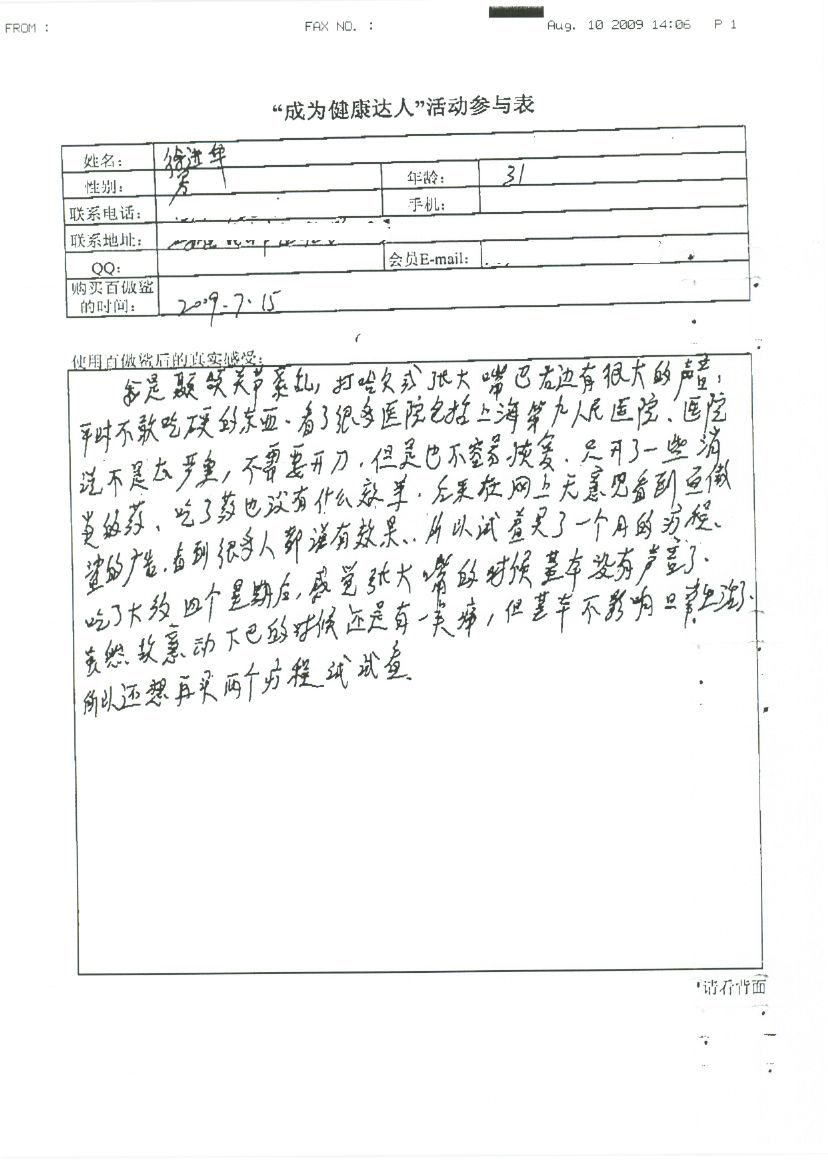 FROM :
FAX NO. :
Aug. 10 2009 14:06 P 1
“成为健康达人”活动参与表
姓名： 徐进华
性别： 男 年龄： 31
联系电话： 手机：
联系地址：
QQ： 会员E-mail：
购买百傲鲨
的时间： 2009-7-15
使用百傲鲨后的真实感受：
我是颞颌关节紊乱，打哈欠或张大嘴巴右边有很大的声音，
平时不敢吃硬的东西。看了很多医院包括上海第九人民医院、医院
说不是太严重，不需要开刀，但是也不容易恢复。只开了一些消
炎的药、吃了药也没有什么效果，后来在网上无意见看到百傲
鲨的广告，看到很多人都说有效果、所以试着买了一个月的疗程、
吃了大约四个星期后，感觉张大嘴的时候基本没有声音了、
虽然故意动下巴的时候还是有一点疼，但基本不影响日常生活了、
所以还想再买两个疗程试试看、
请看背面